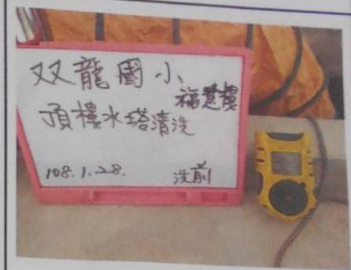 双龍國小
福慧樓
頂樓水塔清洗
108.1.28.
洗前